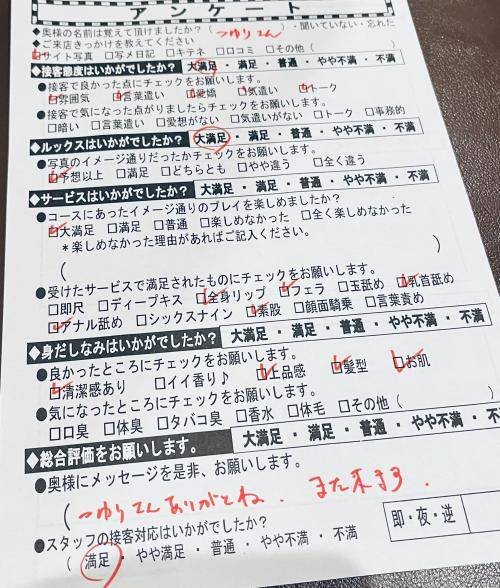 アンケート
◆奥様の名前は覚えて頂けましたか?(つゆりさん)・聞いていない・忘れた
◆ご来店きっかけを教えてください
☑サイト写真 □写メ日記 □キテネ □口コミ □その他(
◆接客態度はいかがでしたか? 大満足・満足・普通・やや不満・不満
●接客で良かった点にチェックをお願いします。
☑雰囲気 ☑言葉遣い ☑愛嬌 ☑気遣い ☑トーク
●接客で気になった点がりましたらチェックをお願いします。
□暗い □言葉遣い □愛想がない □気遣いがない □トーク □事務的
◆ルックスはいかがでしたか? 大満足・満足・普通・やや不満・不満
●写真のイメージ通りだったかチェックをお願いします。
☑予想以上 □満足 □どちらとも □やや違う □全く違う
◆サービスはいかがでしたか? 大満足・満足・普通・やや不満・不満
●コースにあったイメージ通りのプレイを楽しめましたか?
☑大満足 □満足 □普通 □楽しめなかった □全く楽しめなかった
*楽しめなかった理由があればご記入ください。
( )
●受けたサービスで満足されたものにチェックをお願いします。
□即尺 □ディープキス ☑全身リップ ☑フェラ □玉舐め ☑乳首舐め
☑アナル舐め □シックスナイン ☑素股 □顔面騎乗 □言葉責め
◆身だしなみはいかがでしたか? 大満足・満足・普通・やや不満・不満
●良かったところにチェックをお願いします。
☑清潔感あり □イイ香り♪ ☑上品感 ☑髪型 ☑お肌
●気になったところにチェックをお願いします。
□口臭 □体臭 □タバコ臭 □香水 □体毛 □その他( )
◆総合評価をお願いします。 大満足・満足・普通・やや不満・不満
●奥様にメッセージを是非、お願いします。
(つゆりさんありがとね、また来ます。
●スタッフの接客対応はいかがでしたか?
(満足・やや満足・普通・やや不満・不満
即・夜・逆